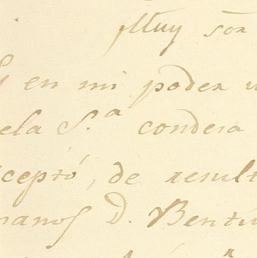 Muy Sor
en mi poder
ela S.ª condesa
cepto, de result
manos D. Bentu